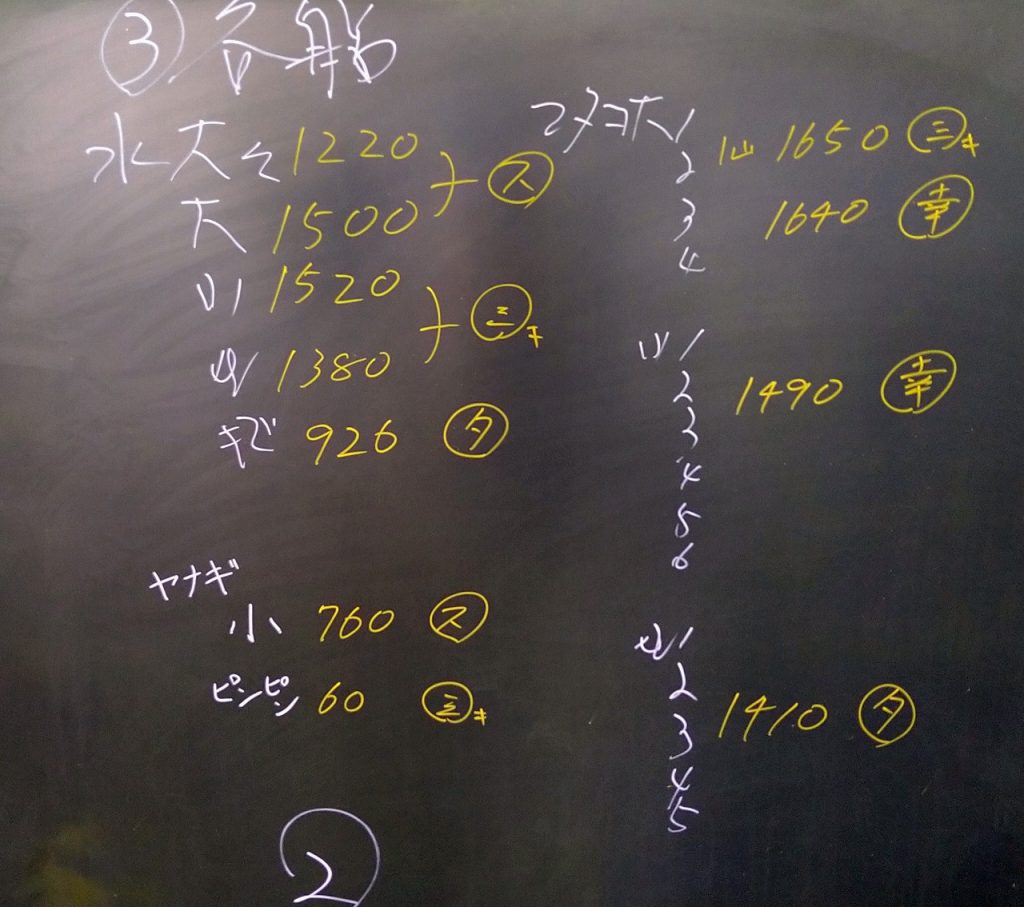 ③ 各船
水 大々 1220
大 1500 ス
小 1520
1380 三キ
キズ 926 タ
ヤナギ
小 760 ス
ピンピン 60 三キ
②
マダコ 大 1
2 1山 1650 三キ
3 1640 幸
4
小 1
2 1490 幸
3
4
5
6
1
2
3 1410 タ
4
5